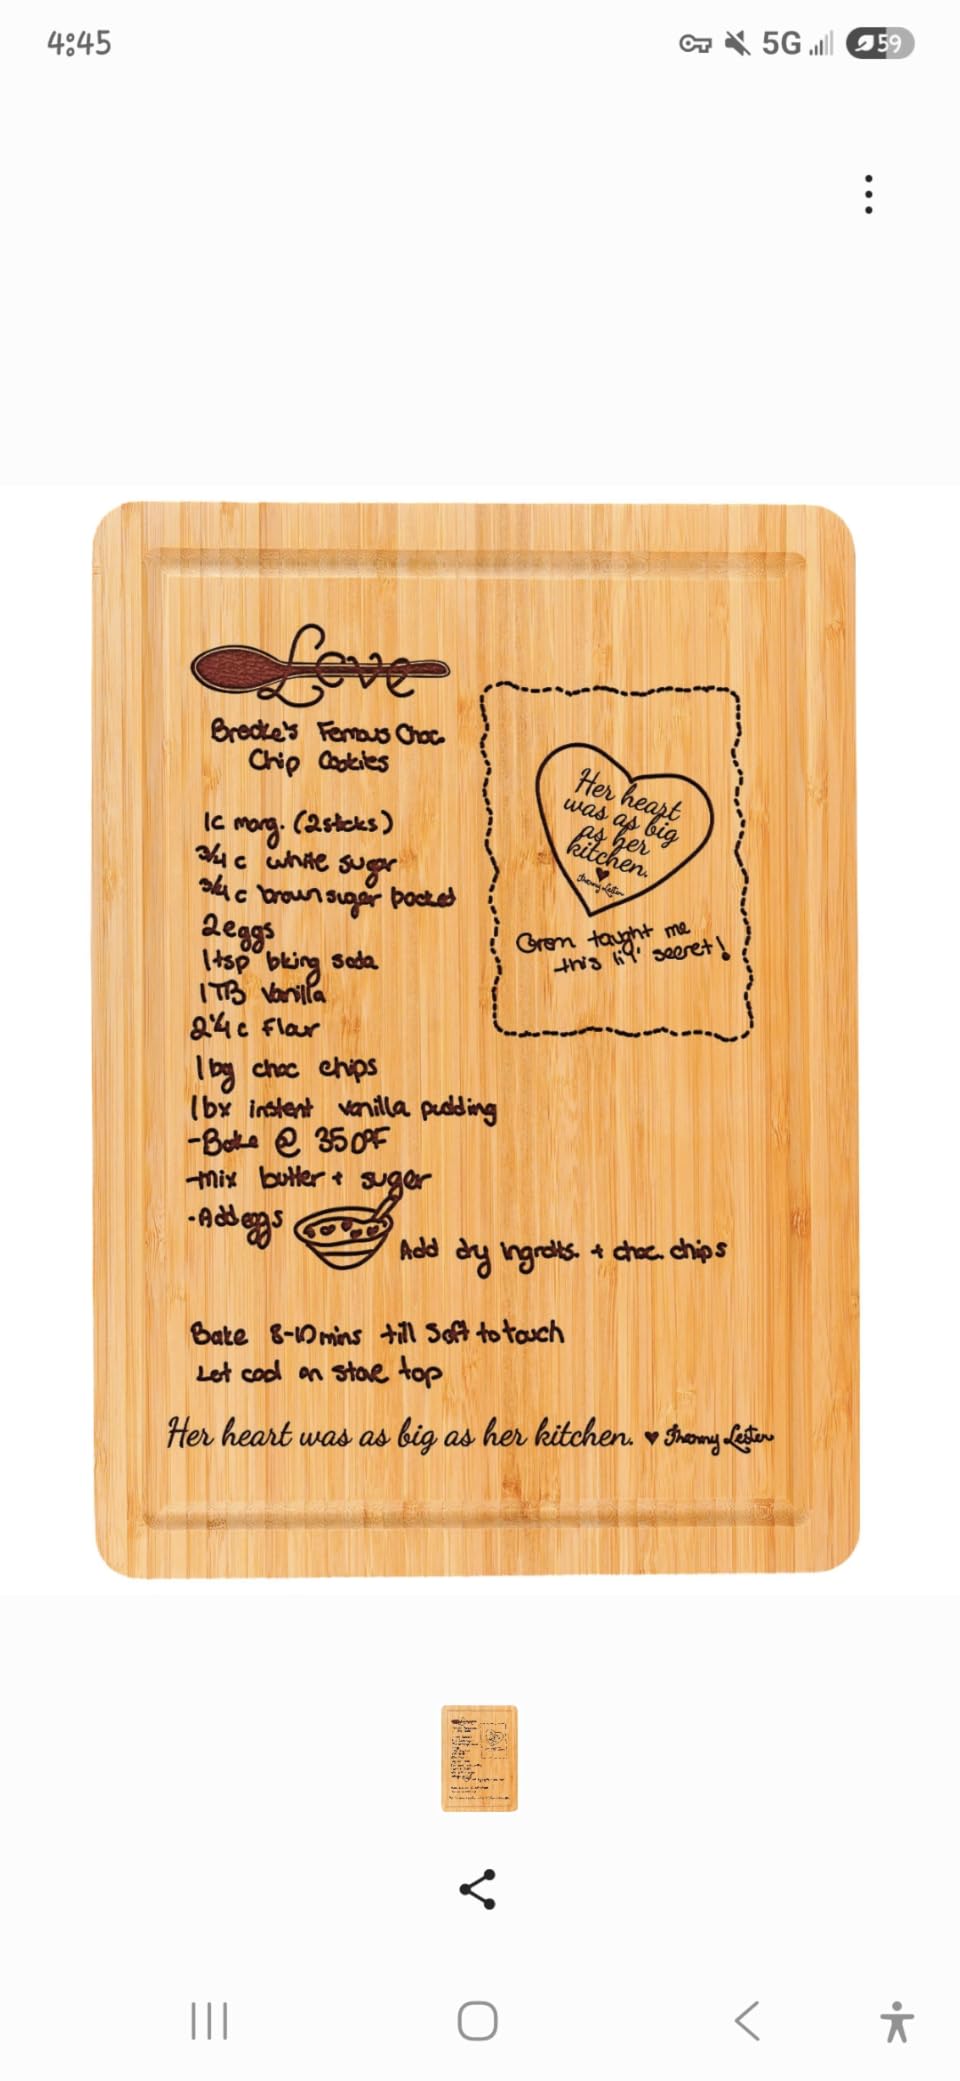 4:45
5G
59
Love
Brooke's Famous Choc
Chip Cookies
1c marg. (2 sticks)
3/4 c white sugar
3/4 c brown sugar packed
2 eggs
1 tsp bking soda
1 TB Vanilla
2 1/4 c Flour
1 bg choc chips
1 bx instant vanilla pudding
-Bake @ 350°F
-mix butter + sugar
-Add eggs
Add dry ingrdts. + choc. chips
Bake 8-10 mins till Soft to touch
Let cool on stove top
Her heart was as big as her kitchen. ♥
Her heart
was as big
as her
kitchen.
♥
Gram taught me
this lil' secret!